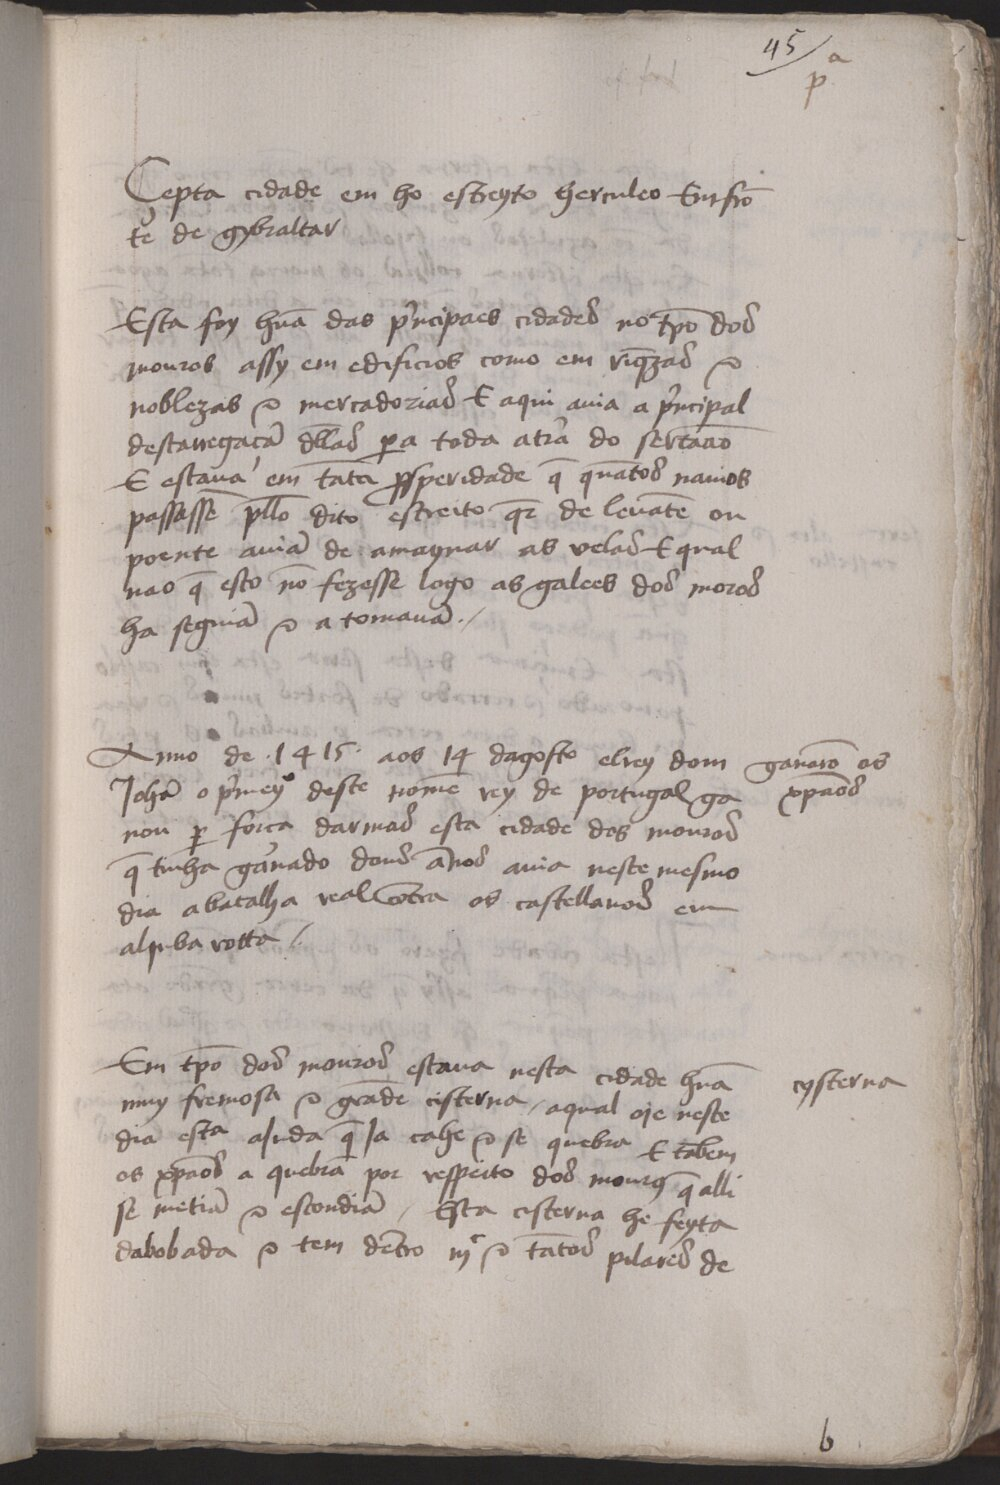 45
pª
Cepta cidade em ho estreyto herculeo Emfrõ
te de gybraltar
Esta foy hũa das p'ncipaes cidades no tpõ dos
mouros assy em edificios como em riq̃zas &
noblezas & mercadorias E aqui auia a p'ncipal
descarregaçã dellas pera toda a trã do sertaão
E estaua em tãta prosperidade q̃ quãtos nauios
passassẽ pello dito estreito qr de leuãte ou
poente auiã de amaynar as velas E qual
nao q̃ esto nõ fezesse logo as galees dos moros
ha seguiã & a tomauã ./
Anno de .1415. aos 14 dagosto elrey dom
Johã o p'meyro deste nome rey de portugal ga
nou per força darmas esta cidade dos mouros
q̃ tinha gãnado doue ãnos auia neste mesmo
dia a batalha real cõtra os castellanos em
aljuba rotta /.
ganarõ os
xpãos
Em tpõ dos mouros estaua nesta cidade hũa
muy fremosa & grãde cisterna / aqual oje neste
dia esta ajnda q̃ ja cahe & se quebra E tãbem
os xpãos a quebrã por respeito dos mouros q̃ alli
se metiã & escondiã / Esta cisterna he feyta
dabobada & tem dẽtro mᶜ & tãtos pilares de
cysterna
b